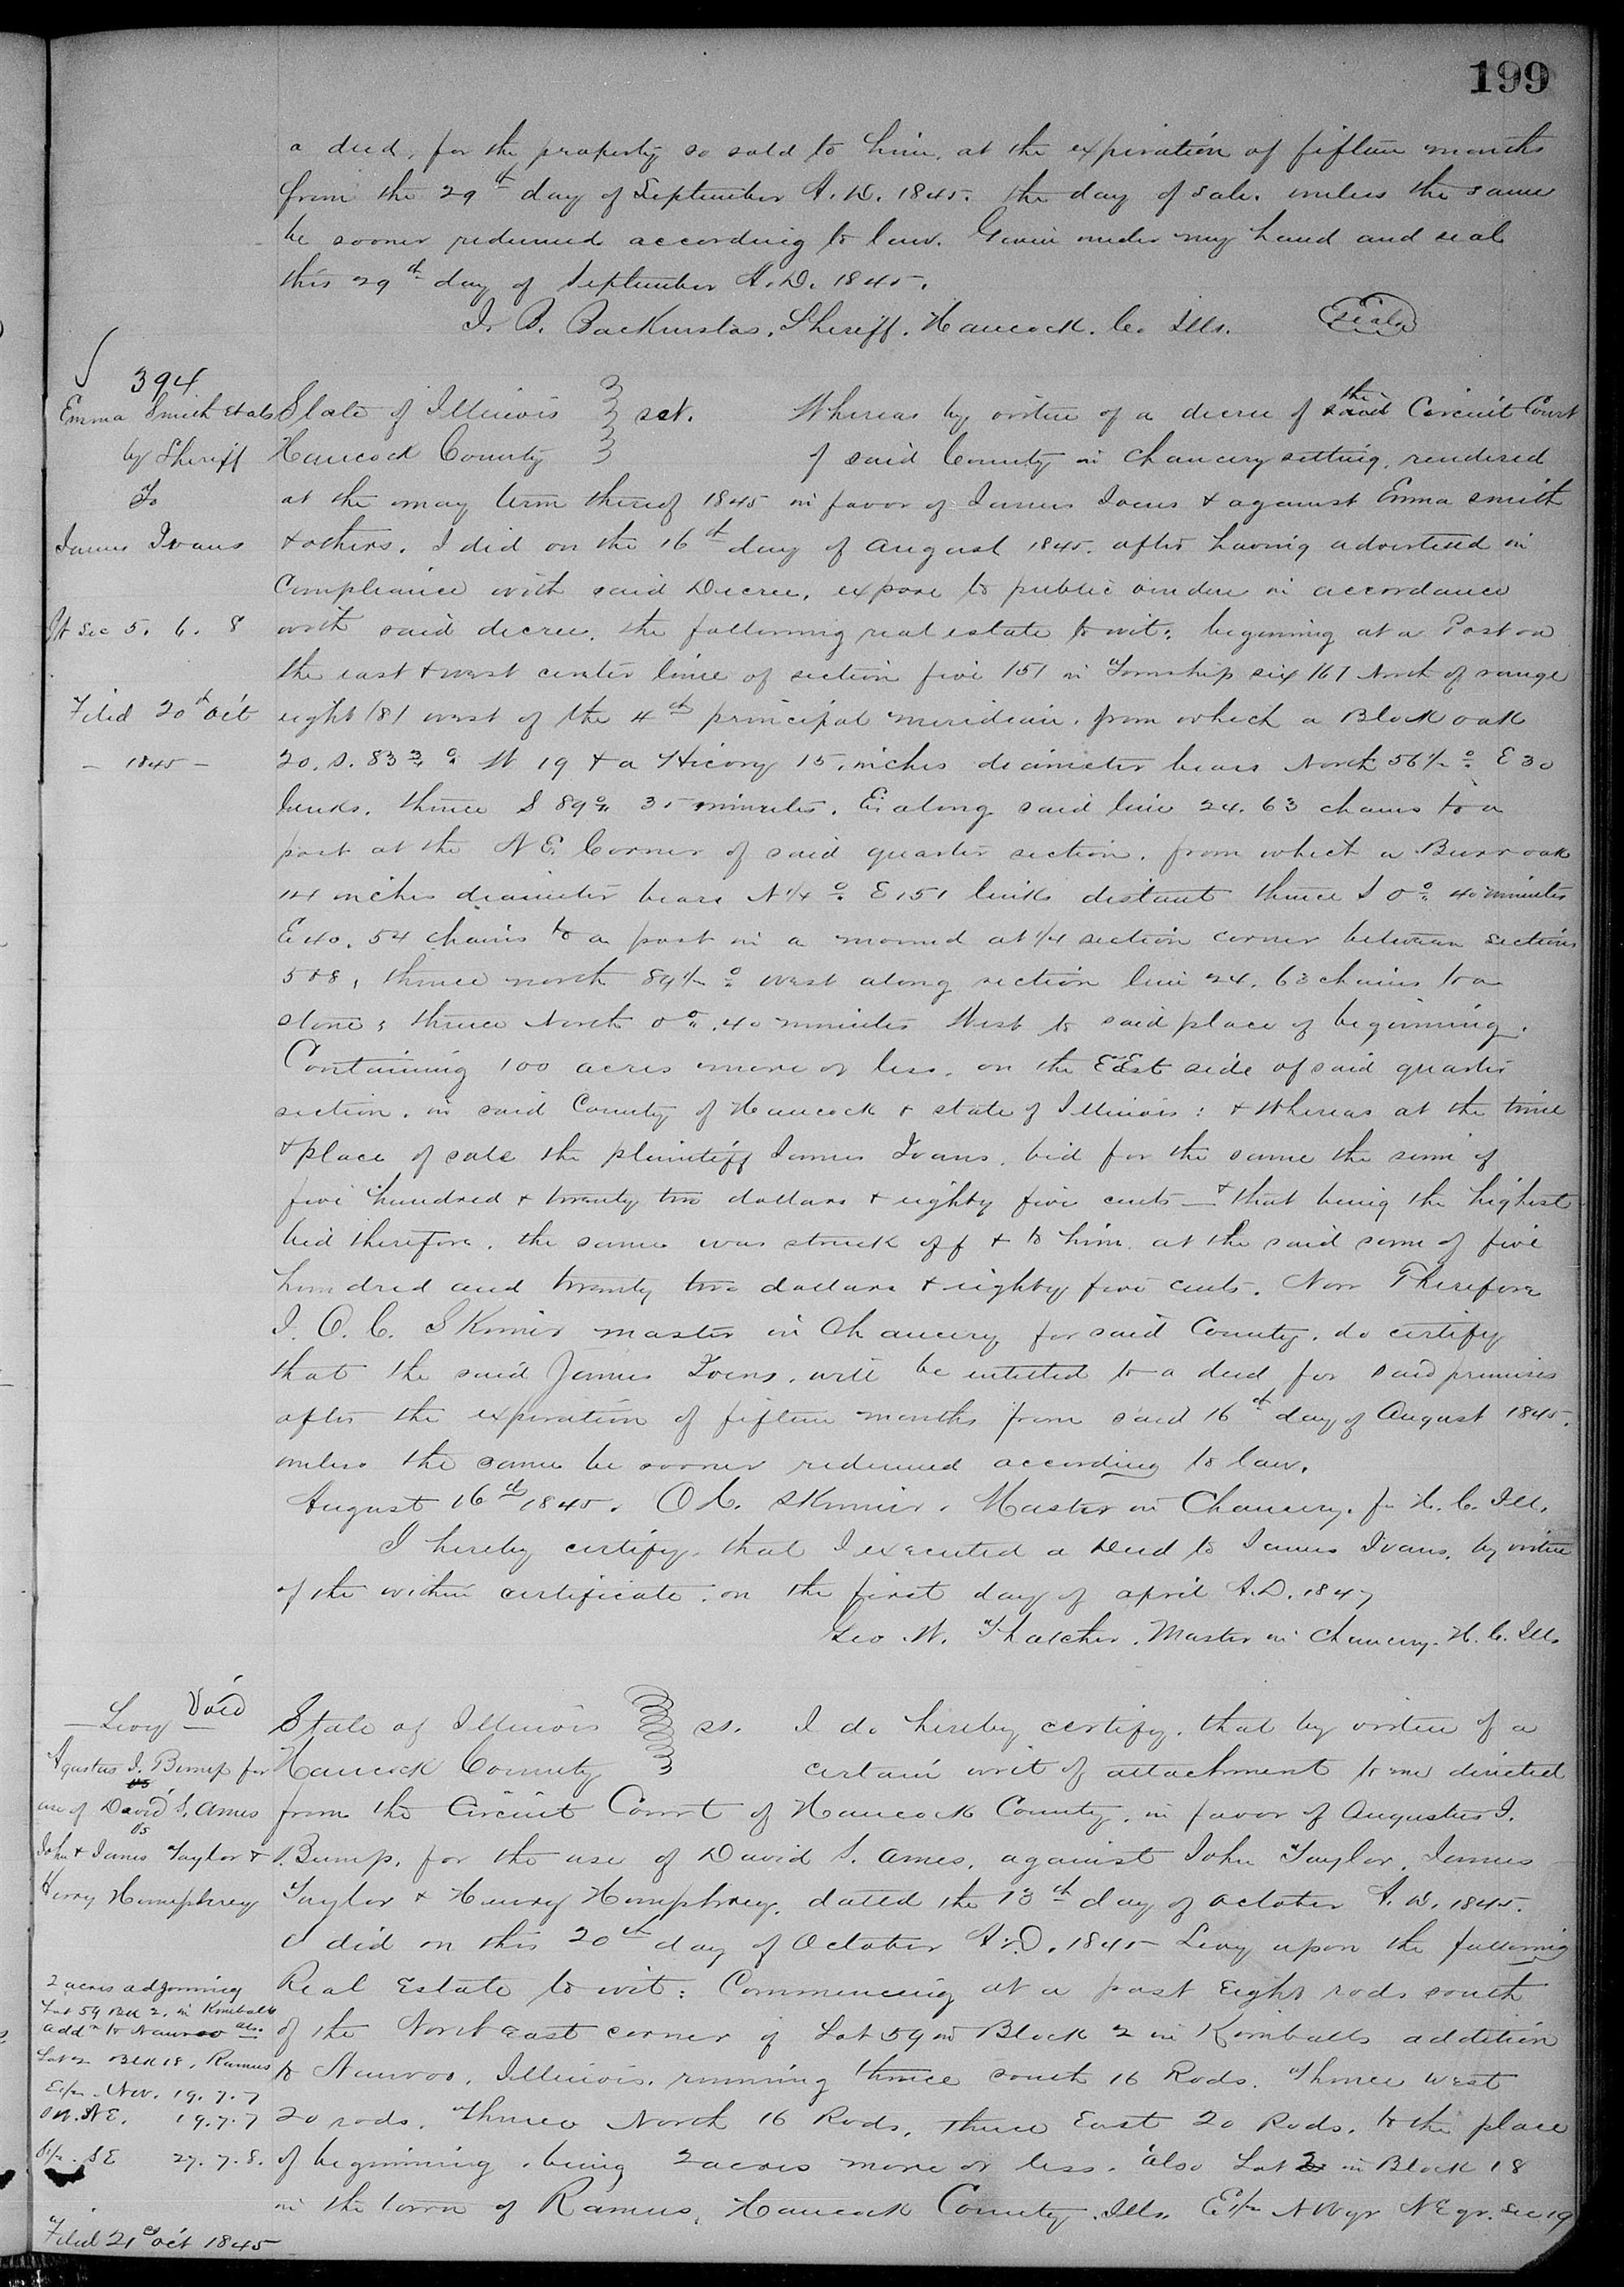 199
a deed, for the property so sold to him, at the expiration of fifteen months
from the 29th day of September A.D. 1845. the day of sale. unless the same
be sooner redeemed according to law. Given under my hand and seal
this 29th day of September A.D. 1845.
J. B. Backenstos, Sheriff, Hancock. Co Ills. (seal)
394
Emma Smith et als
by Sheriff
To
James Ivans
Pt Sec 5. 6. 8
Filed 20th Oct
- 1845 -
State of Illinois } sct. Whereas by virtue of a decree of the said Circuit Court
Hancock County } of said County in Chancery sitting, rendered
at the may term thereof 1845 in favor of James Ivens & against Emma Smith
& others. I did on the 16th day of August 1845. after having advertised in
compliance with said Decree, expose to public vendue in accordance
with said decree, the following real estate to wit: beginning at a Post on
the east & west center line of section five (5) in Township six (6) North of range
eight (8) west of the 4th principal meridian, from which a Black oak
20. S. 83 3/4° W 19 & a Hicory 15, inches diameter bears North 56 1/2° E 30
links. thence S 89° 35 minutes. E. along said line 24.63 chains to a
post at the N E. Corner of said quarter section. from which a Burr oak
14 inches diameter bears N 1/4° E 151 links distant thence S 0° 40 minutes
E 40.54 chains to a post in a mound at 1/4 section corner between sections
5 & 8, thence north 89 1/2° west along section line 24.63 chains to a
stone; thence North 0°. 40 minutes West to said place of beginning.
Containing 100 acres more or less. on the East side of said quarter
section, in said County of Hancock & state of Illinois: & Whereas at the time
& place of sale the plaintiff James Ivans, bid for the same the sum of
five hundred & twenty two dollars & eighty five cents — & that being the highest
bid therefore, the same was struck off & to him, at the said sum of five
hundred and twenty two dollars & eighty five cents. Now Therefore
I. O. C. Skinner master in Chancery for said County, do certify
that the said James Ivens, will be intitled to a deed for said premises
after the expiration of fifteen months from said 16th day of August 1845.
unless the same be sooner redeemed according to law.
August 16th 1845. O.C. Skinner. Master in Chancery. for H. C. Ill.
I hereby certify, that I executed a Deed to James Ivans, by virtue
of the within certificate. on the first day of april A.D. 1847
Geo. W. Thatcher. Master in Chancery. H. C. Ills
Void
— Levy —
Agustus I. Bump for
use of David S. Ames
vs
John & James Taylor &
Henry Homphrey
2 acres adjoining
Lot 59 Blk 2. in Kimballs
addn to Nauvoo als.
Lot 2 Blk 18, Ramus
E 1/2 . NW. 19. 7. 7
NE. 19. 7. 7
SE 27. 7. 8.
Filed 21st Oct 1845
State of Illinois } ss. I do hereby certify, that by virtue of a
Hancock County } certain writ of attachment to me directed
from the Circuit Court of Hancock County, in favor of Augustus I.
Bump, for the use of David S. Ames, against John Taylor, James
Taylor & Henry Homphrey, dated the 13th day of October A.D. 1845.
I did on this 20th day of October A.D. 1845 Levy upon the following
Real Estate to wit: Commencing at a post Eight rods south
of the North east corner of Lot 59 in Block 2 in Kimballs addition
to Nauvoo, Illinois, running thence south 16 Rods. Thence west
20 rods. Thence North 16 Rods, thence East 20 Rods, to the place
of beginning, being 2 acres more or less. also Lot 2 in Block 18
in the town of Ramus, Hancock County, Ills. E 1/2 NW qr NE qr. Sec 19